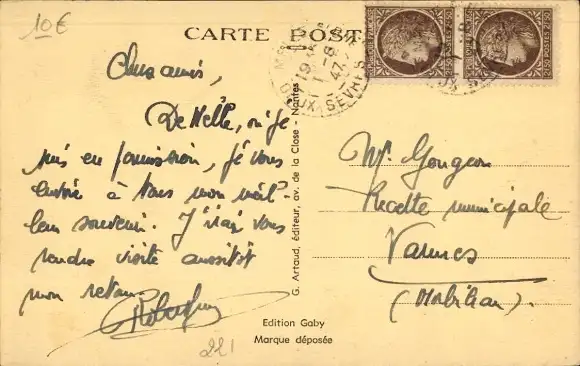 10€
CARTE POST
DEUX-SEVRES
1-8
47
Chers amis,
De Melle, où je
suis en permission, je vous
envoie à tous mon meil-
leur souvenir. J'irai vous
rendre visite aussitôt
mon retour
G. Artaud, éditeur, av. de la Close - Nantes
Mr Gougeon
Recette municipale
Vannes
(Morbihan).
Edition Gaby
Marque déposée
221